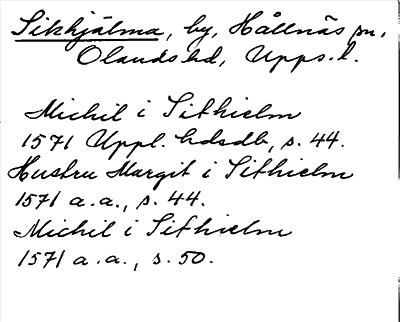 Sikhjälma, by, Hållnäs sn,
Olands hd, Upps. l.
Michil i Sithielm
1571 Uppl. hdsdb, s. 44.
Hustru Margit i Sithielm
1571 a.a., s. 44.
Michil i Sithielm
1571 a.a., s. 50.